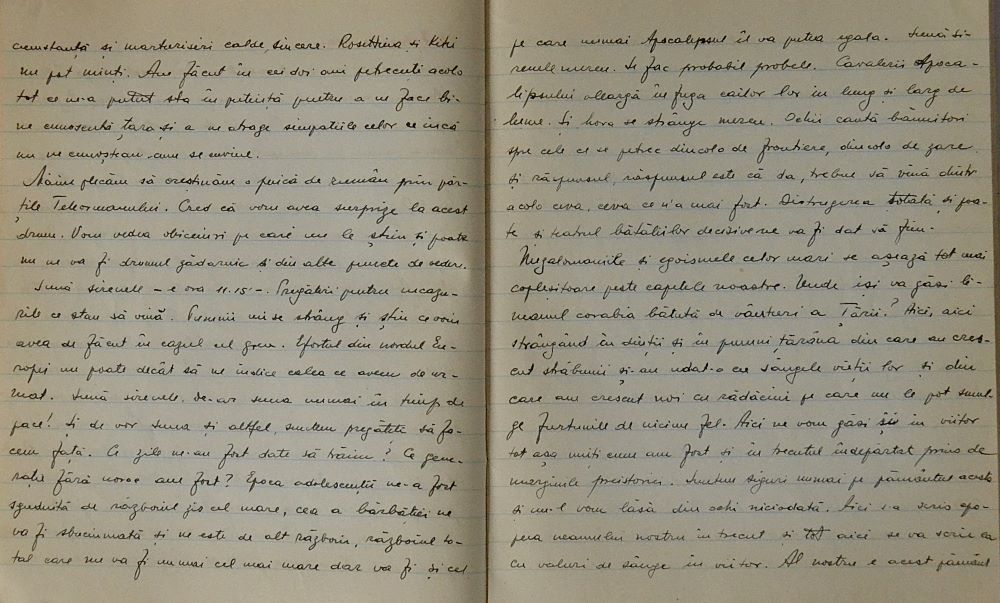 cunstanță și marturisiri calde, sincere. Rosettina și Kiki
nu pot minți. Am făcut în cei doi ani petrecuți acolo
tot ce ne-a putut sta în putință pentru a ne face bi-
ne cunoscută țara și a ne atrage simpatiile celor ce încă
nu ne cunoșteau cum se cuvine.
Mâine plecăm să creștinăm o puică de rumân prin păr-
țile Teleormanului. Cred că vom avea surprize la acest
drum. Vom vedea obiceiuri pe care nu le știm și poate
nu ne va fi drumul zădarnic și din alte puncte de vedere.
Sună sirenele - e ora 11.15'-. Pregătiri pentru necazu-
rile ce stau să vină. Pumnii mi se strâng și știu ce vom
avea de făcut în cazul cel greu. Efortul din nordul Eu-
ropii nu poate decât să ne indice calea ce avem de ur-
mat. Sună sirenele, de-ar suna numai în timp de
pace! Și de vor suna și altfel, suntem pregătiți să fa-
cem față. Ce zile ne-au fost date să trăim? Ce gene-
rație fără noroc am fost? Epoca adolescenții ne-a fost
sguduită de războiul zis cel mare, cea a bărbăției ne
va fi sbuciumată și ne este de alt războiu, războiul to-
tal care nu va fi numai cel mai mare dar va fi și cel
pe care numai Apocalipsul îl va putea egala. Sună si-
renele mereu. Se fac probabil probele. Cavalerii Apoca-
lipsului aleargă în fuga cailor lor în lung și larg de
lume. Și hora se strânge mereu. Ochii caută bănuitori
spre cele ce se petrec dincolo de frontiere, dincolo de zare
și răspunsul, răspunsul este că da, trebue să vină dintr'
acolo ceva, ceva ce n'a mai fost. Distrugerea totală și poa-
te și teatrul bătăliilor decisive ne va fi dat să fim.
Megalomaniile și egoismele celor mari se așează tot mai
copleșitoare peste capetele noastre. Unde își va găsi li-
manul corabia bătută de vânturi a Țării? Aici, aici
strângând în dinții și în pumni țărâna din care au cres-
cut străbunii și-au udat-o cu sângele vieții lor și din
care am crescut noi cu rădăcini pe care nu le pot smul-
ge furtunile de niciun fel. Aici ne vom găsi și în viitor
tot așa uniți cum am fost și în trecutul îndepărtat prins de
marginile preistoriei. Suntem siguri numai pe pământul acesta
și nu-l vom lăsa din ochi niciodată. Aici s-a scris epo-
peea neamului nostru în trecut și tot aici se va scrie ea
cu valuri de sânge în viitor. Al nostru e acest pământ